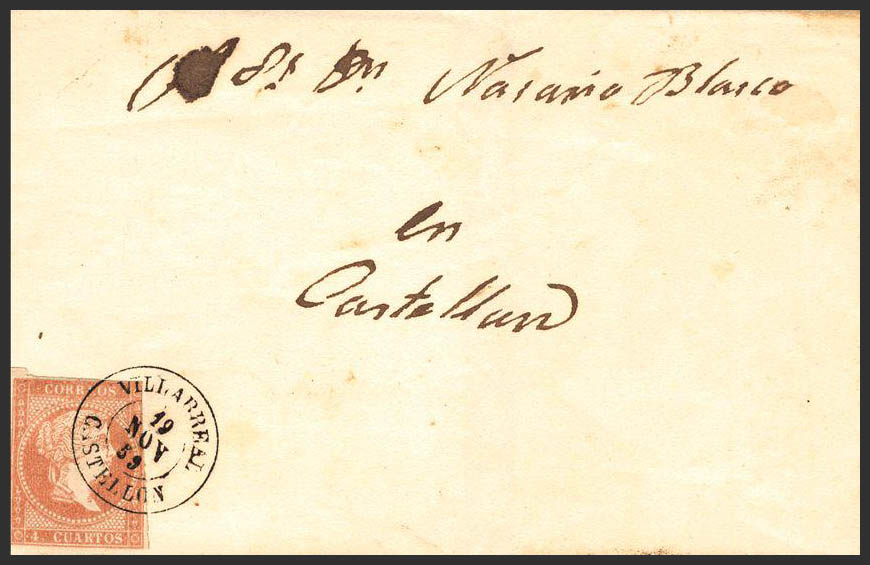 Sr. Dn. Nasario Blasco
en
Castellon
CORREOS
4 CUARTOS
VILLARREAL
19
NOV
59
CASTELLON